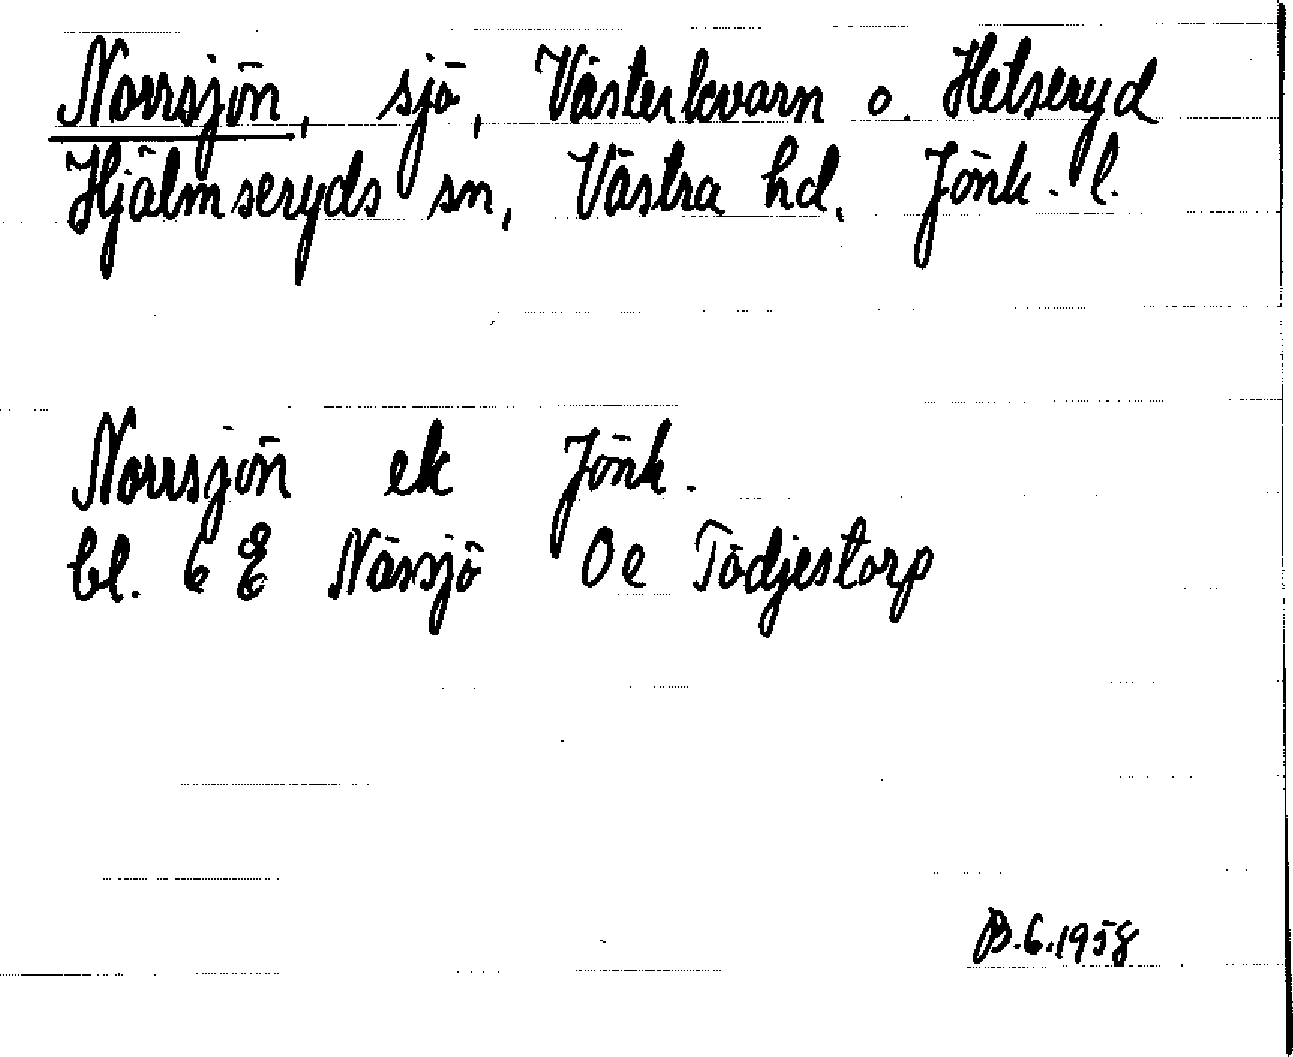 Norrsjön, sjö, Västerkvarn o. Hetseryd
Hjälmseryds sn, Västra hd, Jönk. l.
Norrsjön ek Jönk.
bl. 6 E Nässjö 0e Tädjestorp
B.6.1958